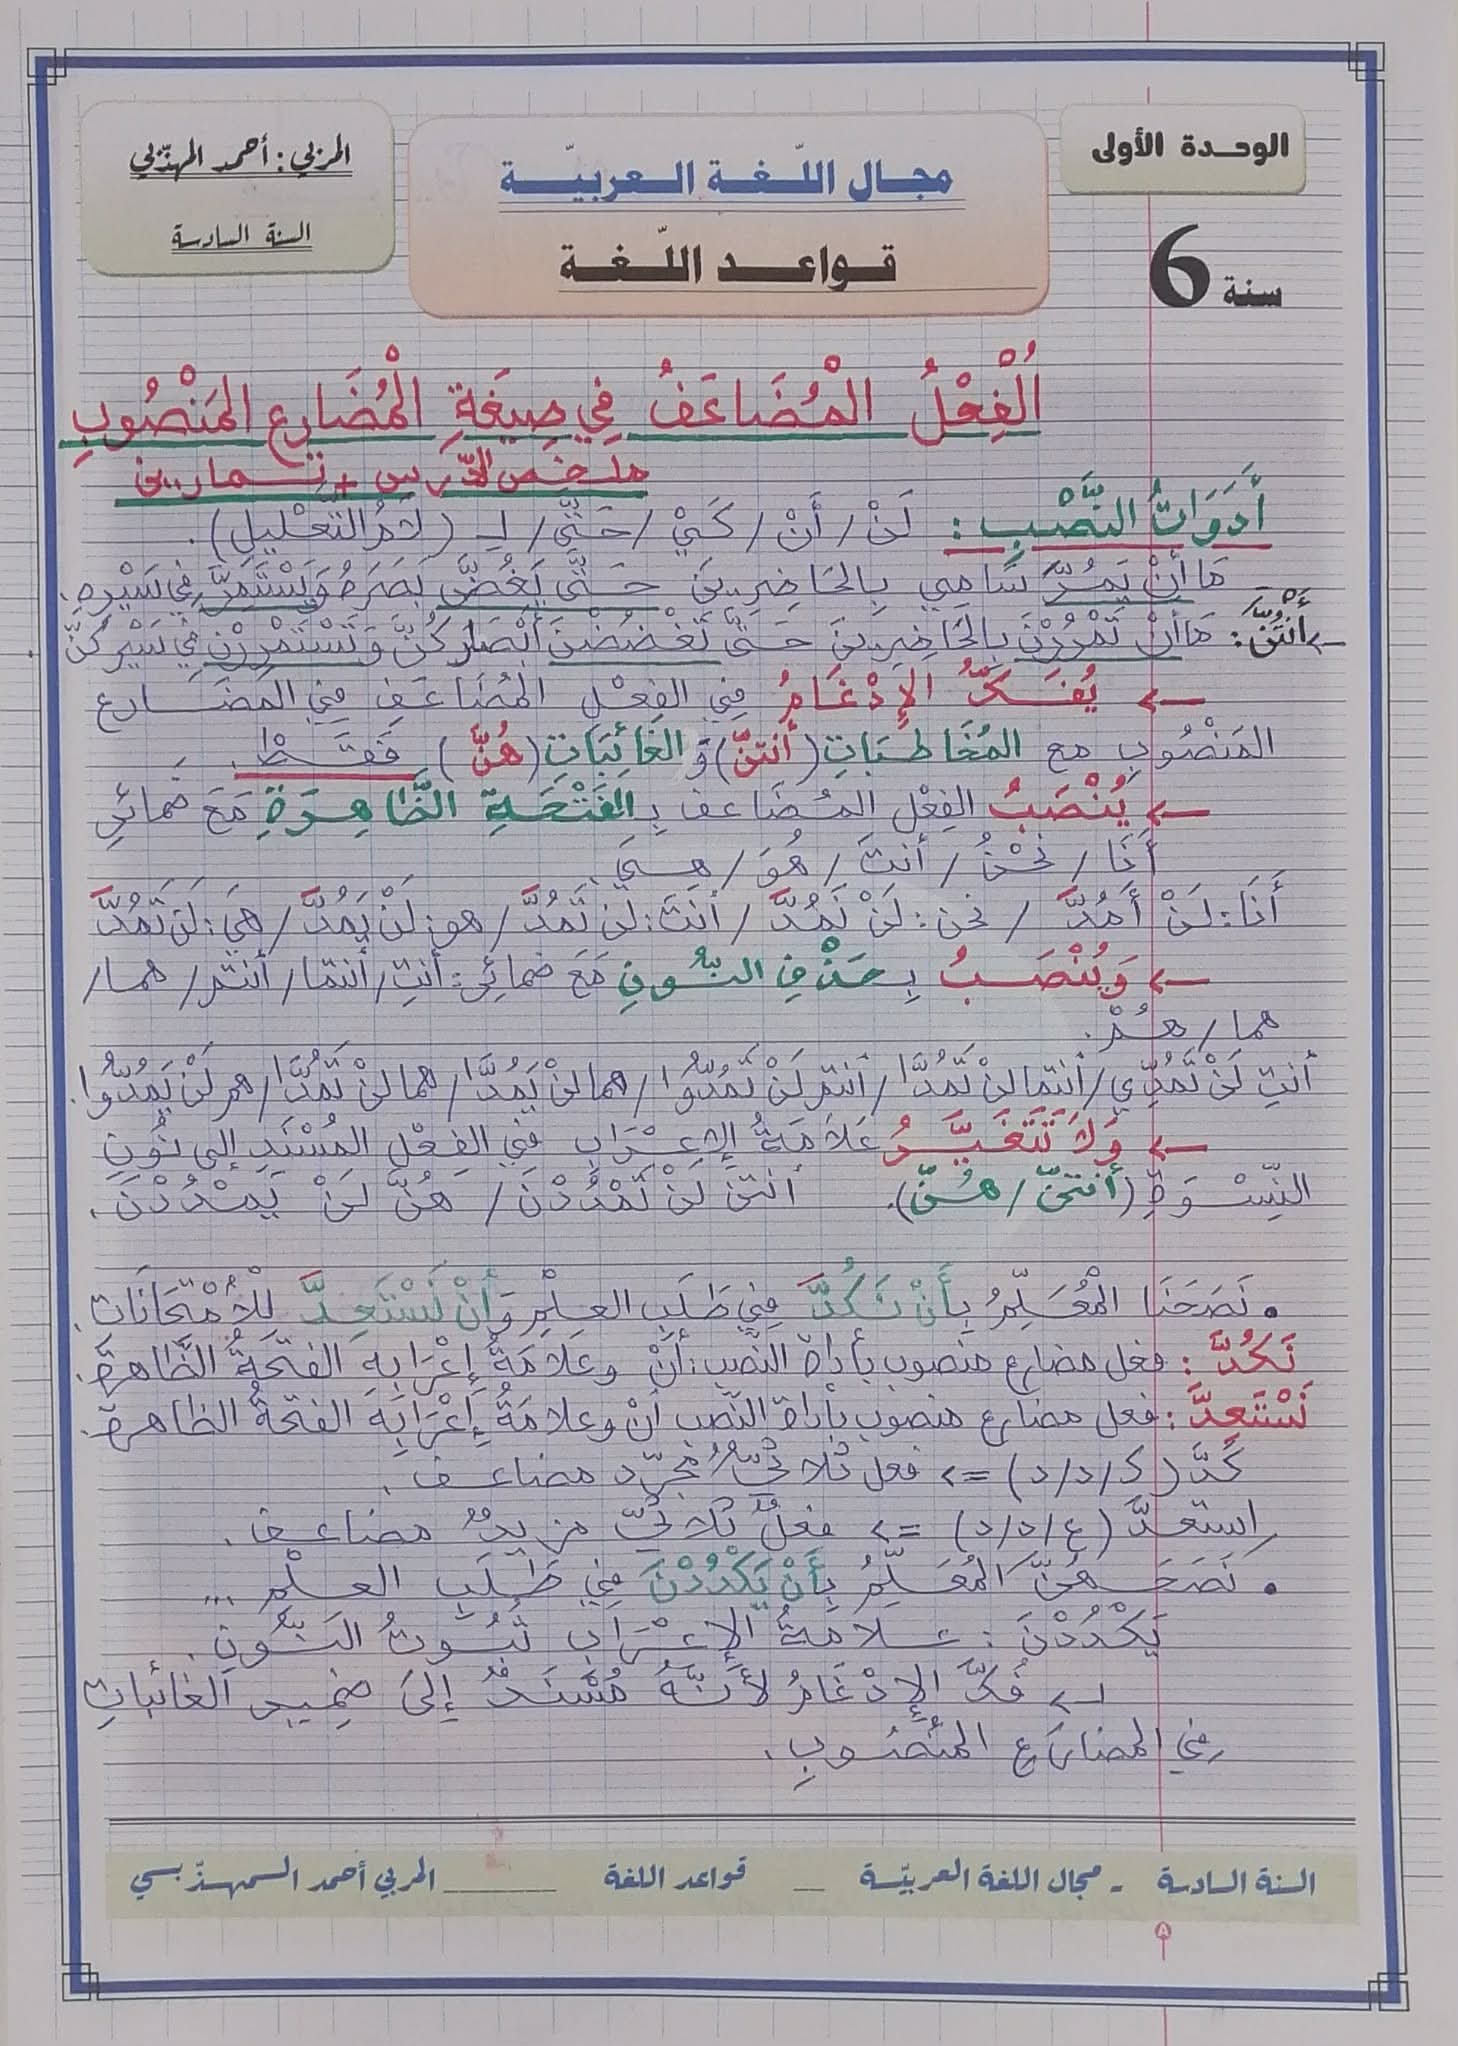 الوحدة الأولى
سنة 6
مجال اللّغة العربيّة
قواعد اللّغة
المربي : أحمد المهذّبي
السنة السادسة
اَلْفِعْلُ الْمُضَاعَفُ فِي صِيغَةِ الْمُضَارِعِ المَنْصُوبِ
ملخص الدّرس + تمارين
أَدَوَاتُ النَّصْبِ : لَنْ / أَنْ / كَيْ / حَتَّى / لِـ (لامُ التَّعْلِيلِ).
مَا أَنْ يَمُرَّ سَامِي بِالحَاضِرِينَ حَتَّى يَغُضَّ بَصَرَهُ وَيَسْتَمِرَّ فِي سَيْرِهِ.
← أَنْتُنَّ : مَا أَنْ تَمْرُرْنَ بِالحَاضِرِينَ حَتَّى تَغْضُضْنَ أَبْصَارَكُنَّ وَتَسْتَمْرِرْنَ فِي سَيْرِكُنَّ.
← يُفَكُّ الإِدْغَامُ فِي الفِعْلِ المُضَاعَفِ فِي المضَارع
المَنْصُوبِ مع المُخَاطَبَاتِ (أَنتنَّ) وَالغَائِبَاتِ (هُنَّ) فَقَطْ.
← يُنْصَبُ الفِعْل المُضَاعف بِـالفَتْحَةِ الظَّاهِرَةِ مَعَ ضمائرِ
أَنَا / نَحْنُ / أنتَ / هُوَ / هِيَ.
أَنَا : لَنْ أَمُدَّ / نحن : لَنْ نَمُدَّ / أنتَ : لن تَمُدَّ / هو : لَنْ يَمُدَّ / هيَ : لَن تَمُدَّ
← وَيُنْصَبُ بِحَذْفِ النُّونِ مَعَ ضمائرِ : أنتِ / أنتما / أنتم / هما /
هما / هُمْ.
أنتِ لَنْ تَمُدِّي / أنتما لنْ تَمُدَّا / أنتم لَنْ تَمُدُّوا / هما لنْ يَمُدَّا / هما لنْ تَمُدَّا / هم لَنْ يَمُدُّوا.
← وَلاَ تَتَغَيَّرُ عَلاَمَةُ الإِعْرَابِ في الفِعْلِ المُسْنَدِ إلى نُونِ
النِّسْوَةِ (أنتنّ / هُنّ). أنتنّ لَنْ تَمْدُدْنَ / هُنَّ لَنْ يَمْدُدْنَ.
• نَصَحَنَا الْمُعَلِّمُ بِأَنْ نَكُدَّ فِي طَلَبِ العِلْمِ وَأَنْ نَسْتَعِدَّ لِلاِمْتِحَانَاتِ.
نَكُدَّ : فعل مضارع منصوب بأداة النّصب : أَنْ وعَلاَمَةُ إِعْرَابِهِ الفتحَةُ الظَّاهرةُ.
نَسْتَعِدَّ : فعل مضارع منصوب بأداة النّصب أنْ وعلامَةُ إِعْرَابِهِ الفتحَةُ الظاهرة.
كَدَّ (ك / د / د) => فعل ثلاثيّ مُجَرّد مضاعف.
اِستعدَّ (ع / د / د) => فعلٌ ثلاثيّ مزيدٌ مضاعف.
• نَصَحَهُنَّ الْمُعَلِّمُ بِأَنْ يَكْدُدْنَ فِي طَلَبِ العِلْمِ ...
يَكْدُدْنَ : علامَةُ الإعْرَابِ ثُبُوتُ النُّونِ.
↲ فُكَّ الإِدْغَامُ لأَنَّهُ مُسْنَدٌ إِلَى ضمِيرِ الغائبَاتِ
فِي المضارِعِ المنْصُوبِ.
السنة السادسة - مجال اللغة العربيّة _ قواعد اللغة ______ المربي أحمد المهذّبي